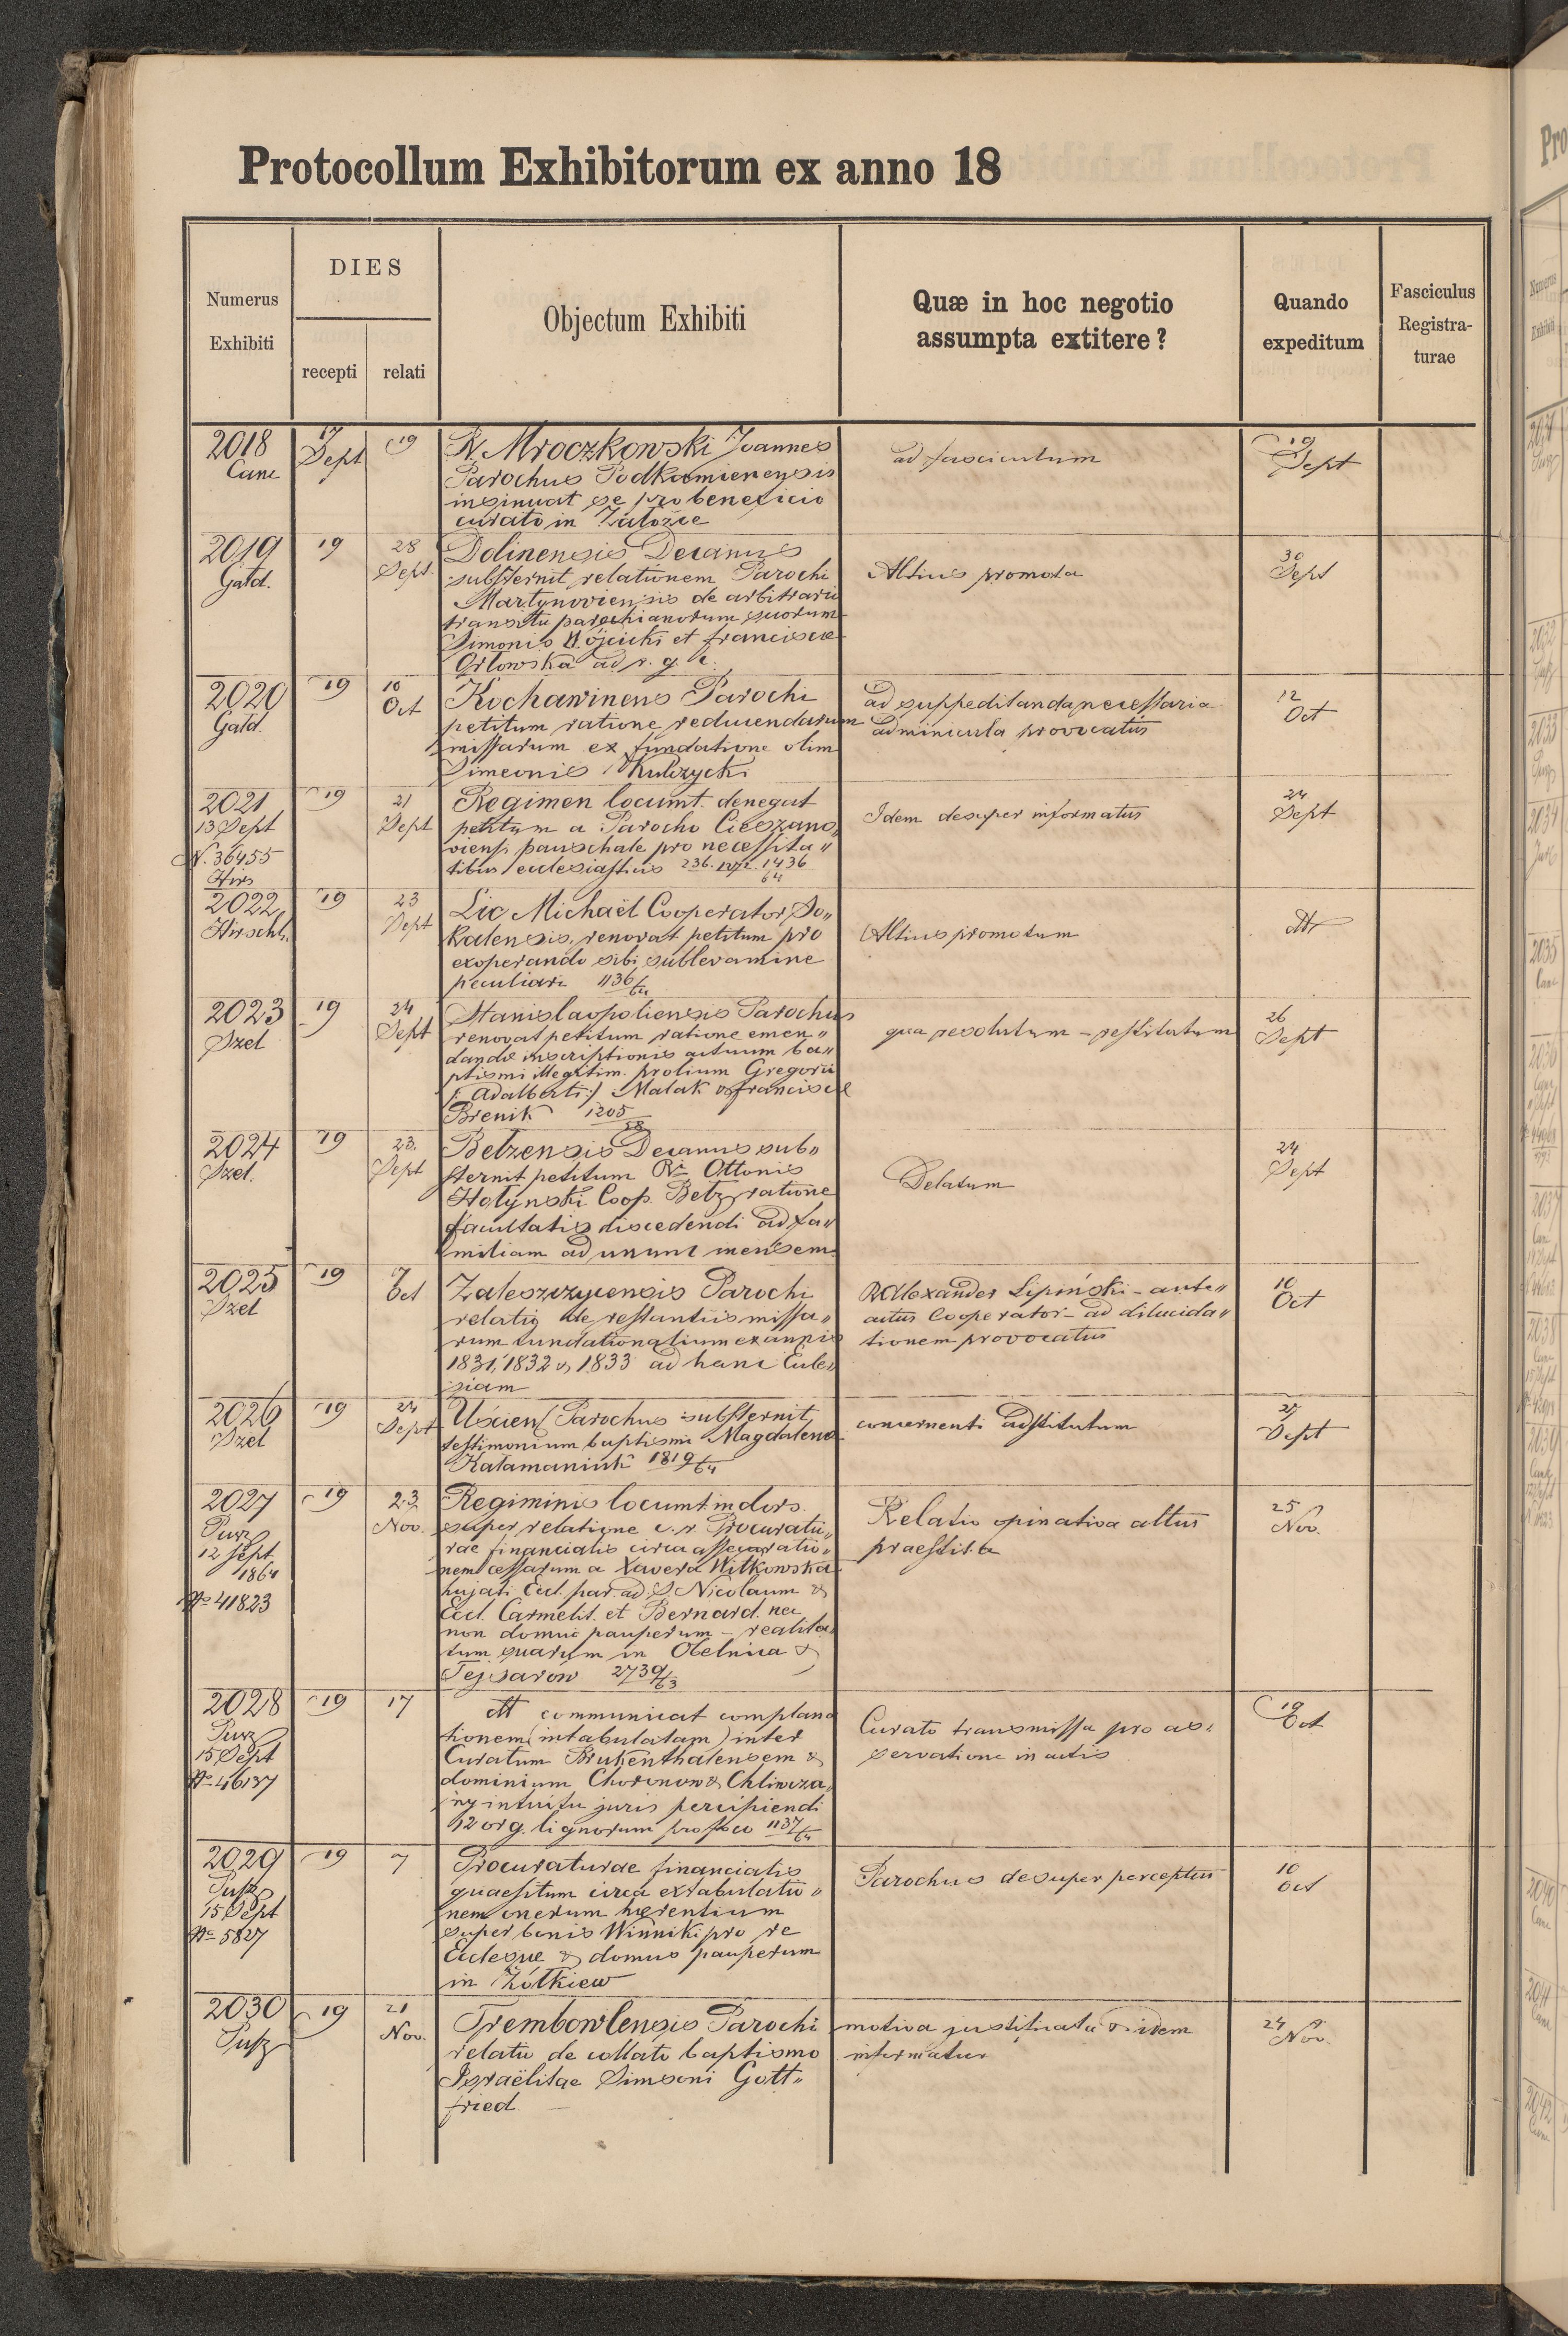 Protocollum Exhibitorum ex anno 18
Numerus
Exhibiti
DIES
recepti
relati
Objectum Exhibiti
Quæ in hoc negotio
assumpta extitere?
Quando
expeditum
Fasciculus
Registra-
turae
2018
Canc
17
Sept
19
R. Mroczkowski Joannes
Parochus Podkamienensis
insinuat se pro beneficio
curato in Założce
ad fasciculum
19
Sept
2019
Gald.
19
28
Sept.
Dolinensis Decanus
substernit relationem Parochi
Martynoviensis de arbitrario
transitu parochianorum suorum
Simonis Wójcicki et Franciscæ
Orłowska ad r. g. c.
Altius promota
30
Sept
2020
Gald.
19
10
Oct
Kochawinens Parochi
petitum ratione reducendarum
missarum ex fundatione olim
Simeonis Kulczycki
ad suppeditanda necessaria
adminicula provocatus
12
Oct
2021
13 Sept
N. 36455
Hirs
19
21
Sept
Regimen locumt. denegat
petitum a Parocho Cieszano„
viens. pauschale pro necessita„
tibus ecclesiasticis 1436
64
Idem desuper informatus
24
Sept
2022
Hirschl.
19
23
Sept
Lic Michaël Cooperator So„
kalensis, renovat petitum pro
exoperando sibi sublevamine
peculiari 1136/64
Altius promotum
dtto
2023
Szel
19
24
Sept
Stanislaopoliensis Parochus
renovat petitum ratione emen„
dandæ inscriptionis actuum ba„
ptismi illegitim. prolium Gregorii
/: Adalberti :/ Malak & Franciscæ
Brenik 1205
58
qua resolutum - restitutum
26
Sept
2024
Szel.
19
23.
Sept
Belzensis Decanus sub„
sternit petitum Ri Ottonis
Hołynski Coop. Belz. ratione
facultatis discedendi ad fa„
miliam ad unum mensem
Delatum
24
Sept
2025
Szel
19
7
Oct
Zaleszczycensis Parochi
relatio de restantiis missa„
rum fundationalium ex annis
1831, 1832 & 1833 ad hanc Eccle„
siam
R Alexander Lipiński - ante„
actus Cooperator - ad dilucida„
tionem provocatus
10
Oct
2026
Szel
19
24
Sept
Uścien. Parochus substernit
testimonium baptismi Magdalena
Kałamaniuk 1819/64
concernenti adstitutum
27
Sept
2027
Purz
12 Sept.
1864
No 41823
19
23
Nov.
Regiminis locumt indors.
super relatione c. r. Procuratu„
rae financialis circa assecuratio„
nem cessarum a Xavera Witkowska
hujati Eccl. par. ad S. Nicolaum &
Eccl. Carmelit. et Bernard. nec
non domui pauperum - realita„
tum quarum in Obelnica &
Tejsarów 2739/63
Relatio opinativa altius
praestita
25
Nov.
2028
Purz
15 Sept
No 46137
19
17
dtt communicat complana
tionem (intabulatam) inter
Curatum Brukenthalensem &
dominium Choronow & Chliwcza„
ny intuitu juris percipiendi
12 org. lignorum pro foco 1137/64
Curato transmissa pro as„
servatione in actis
19
Oct
2029
Pusz
15 Sept
No 5827
19
7
Procuraturae financialis
quaesitum circa extabulatio„
nem onerum hærentium
super bonis Winniki pro re
Ecclesiæ & domus pauperum
in Żółkiew
Parochus desuper perceptus
10
Oct
2030
Pusz
19
21
Nov.
Trembowlensis Parochi
relatio de collato baptismo
Israëlitae Simsoni Gott„
fried
motiva justificata & idem
informatus
24
Nov.